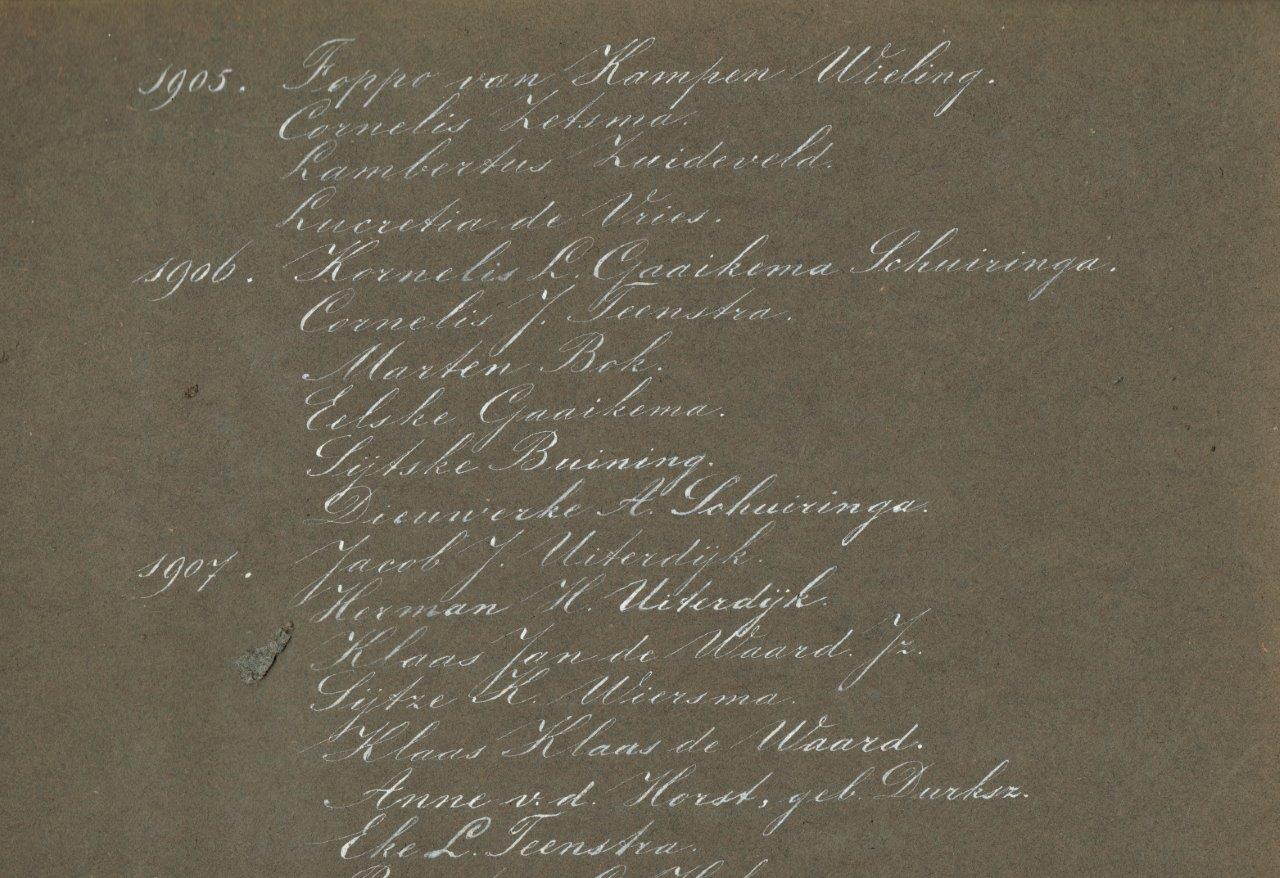 1905. Foppo van Kampen Wieling.
Cornelis Zetsma.
Lambertus Zuideveld.
Lucretia de Vries.
1906. Kornelis L. Gaaikema Schuiringa.
Cornelis J. Teenstra.
Marten Bok.
Eelske Gaaikema.
Sijtske Buining.
Dieuwerke A. Schuiringa.
1907. Jacob J. Uiterdijk.
Herman H. Uiterdijk.
Klaas Jan de Waard. Jz.
Sijtze K. Wiersma.
Klaas Klaas de Waard.
Anne v.d. Horst, geb. Durksz.
Eke L. Teenstra.